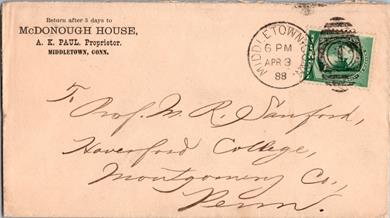 Return after 5 days to
McDONOUGH HOUSE,
A. K. PAUL, Proprietor.
MIDDLETOWN, CONN.
MIDDLETOWN CONN.
6 PM
APR 3
88
To
Prof. M. R. Sanford,
Haverford College,
Montgomery Co.,
Penn.